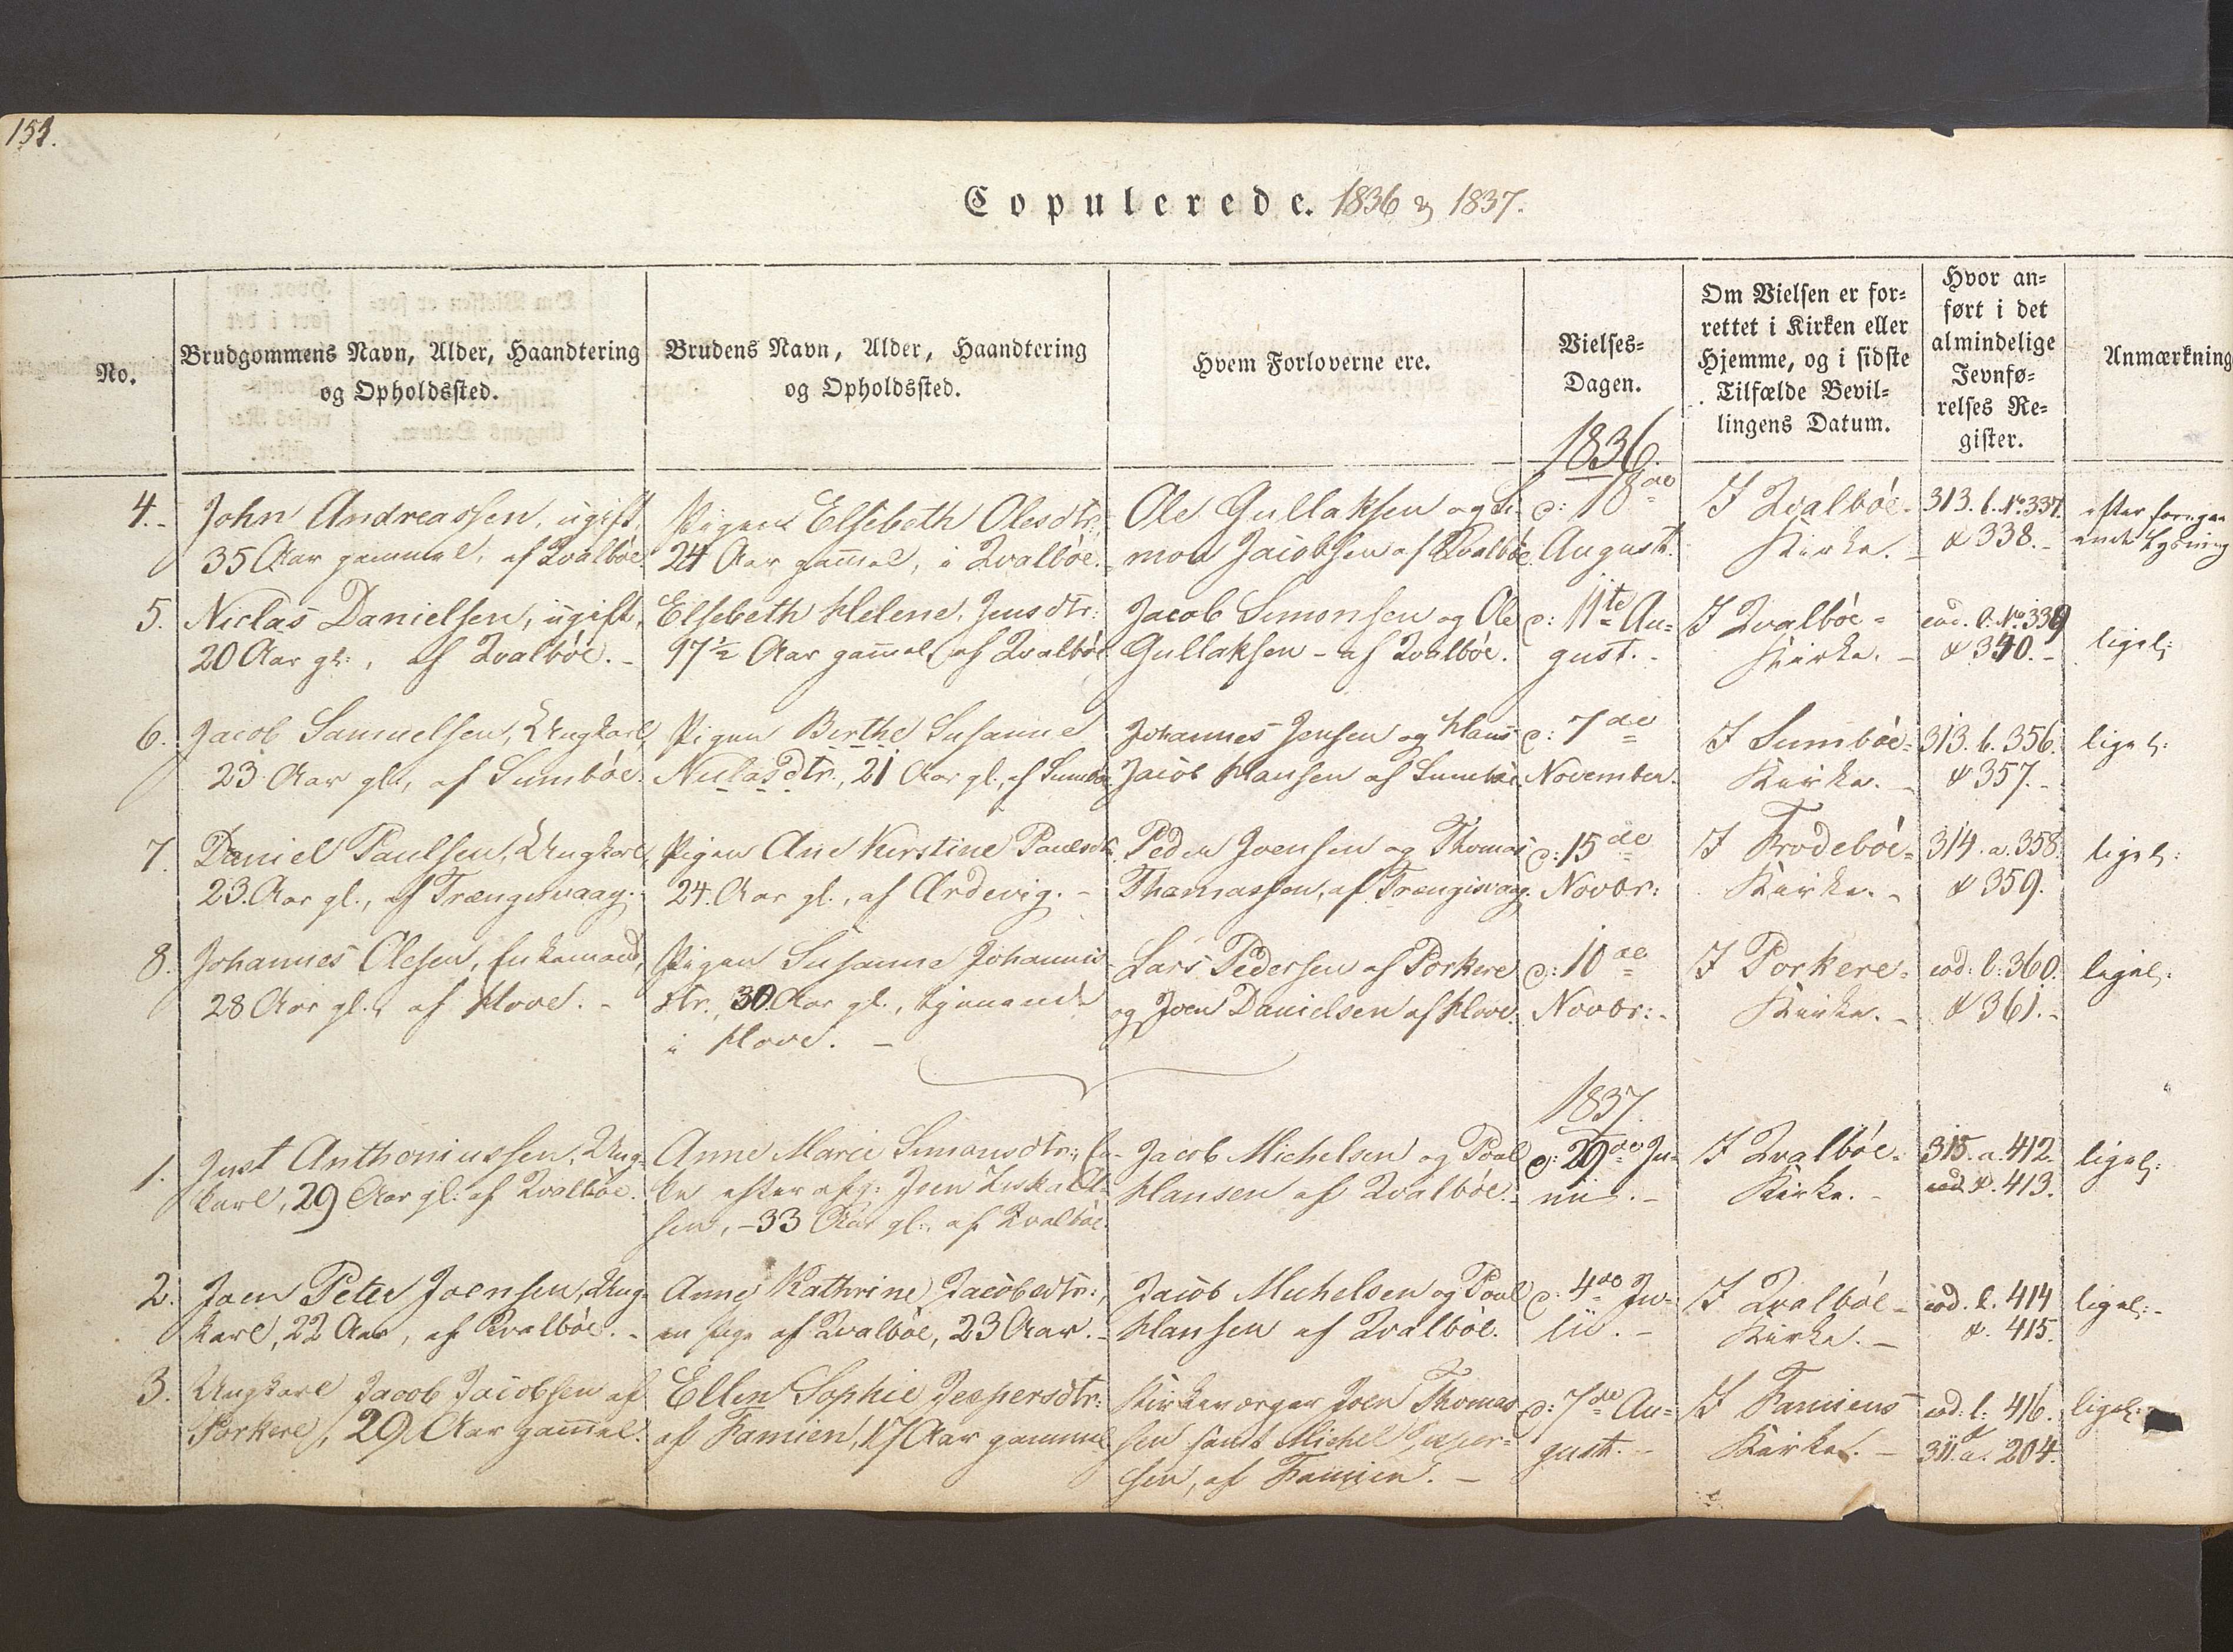 154.
Copulerede. 1836 & 1837.
No.
Brudgommens Navn, Alder, Haandtering
og Opholdssted.
Brudens Navn, Alder, Haandtering
og Opholdssted.
Hvem Forloverne ere.
Vielses=
Dagen.
Om Vielsen er for=
rettet i Kirken eller
Hjemme, og i sidste
Tilfælde Bevil=
lingens Datum.
Hvor an=
ført i det
almindelige
Jevnfø=
relses Re=
gister.
Anmærkning
1836.
4.-
John Andreassen, ugift,
35 Aar gammel, af Qvalböe
Pigen Elsebeth Olesdtr:
24 Aar gam̄el, i Qvalböe.-
Ole Gullaksen og Si-
mon Jacobsen af Qvalböe.
d: 18de
August.
I Qvalböe-
Kirke. -
313. b. No 337.
& 338.-
efter foregaa
ende Lysning
5.
Niclas Danielsen, ugift,
20 Aar gl:, af Qvalböe. -
Elsebeth Helene Jensdtr:
17½ Aar gam̄el, af Qvalböe
Jacob Simonsen og Ole
Gullaksen - af Qvalböe.
d: 11te Au=
gust.-
I Qvalböe=
Kirke. -
eod. b. No 339
& 340.-
ligel:
6.
Jacob Samuelsen, Ungkarl,
23 Aar gl:, af Sumböe.
Pigen Berthe Susanne
Niclasdtr., 21 Aar gl., af Sumböe
Johannes Jensen og Hans
Jacob Hansen af Sumböe.
d: 7de
November.
I Sumböe=
Kirke. -
313. b. 356.
& 357.-
ligel:
7.
Daniel Paulsen, Ungkarl,
23. Aar gl., af Trængisvaag.
Pigen Ane Kirstine Paulsdtr.
24. Aar gl., af Ördevig. -
Peder Joensen og Thomas
Thomassen, af Trængisvaag.
d: 15de
Novbr:
I Frodeböe=
Kirke. -
314. a. 358.
& 359.
ligel:
8.
Johannes Olesen, Enkemand,
28 Aar gl., af Hove. -
Pigen Susanne Johannis-
dtr., 30. Aar gl., tjenende
i Hove. -
Lars Pedersen af Porkere
og Joen Danielsen af Hove.
d: 10de
Novbr:-
I Porkere-
Kirke. -
eod: b: 360.
& 361.-
ligel:
1837.
1.
Just Anthoniussen, Ung-
karl, 29 Aar gl: af Qvalböe.
Anne Marie Simonsdtr:, En-
ke efter afg: Joen Ziska Ol-
sen, -33 Aar gl:, af Qvalböe.
Jacob Michelsen og Poul
Hansen af Qvalböe.-
d: 29de Ju-
nii. -
I Qvalböe-
Kirke. -
315. a. 412.
eod. & 413.
ligel:
2.
Joen Peter Joensen, Ung-
karl, 22 Aar, af Qvalböe. -
Anne Kathrine Jacobsdtr:,
en Pige af Qvalböe, 23 Aar.-
Jacob Michelsen og Poul
Hansen af Qvalböe.
d: 4de Ju-
lii. -
I Qvalböe-
Kirke. -
eod. b. 414
&. 415.
ligel:-
3.
Ungkarl Jacob Jacobsen af
Porkere, 29 Aar gam̄el.
Ellen Sophie Jespersdtr:
af Famien, 17 Aar gammel
Kirkeværger Joen Thomas-
sen samt Michel Jesper-
sen, af Famien. -
d: 7de Au=
gust. -
I Famiens
Kirke. -
eod: b: 416. &
311. a. 204.
ligel: